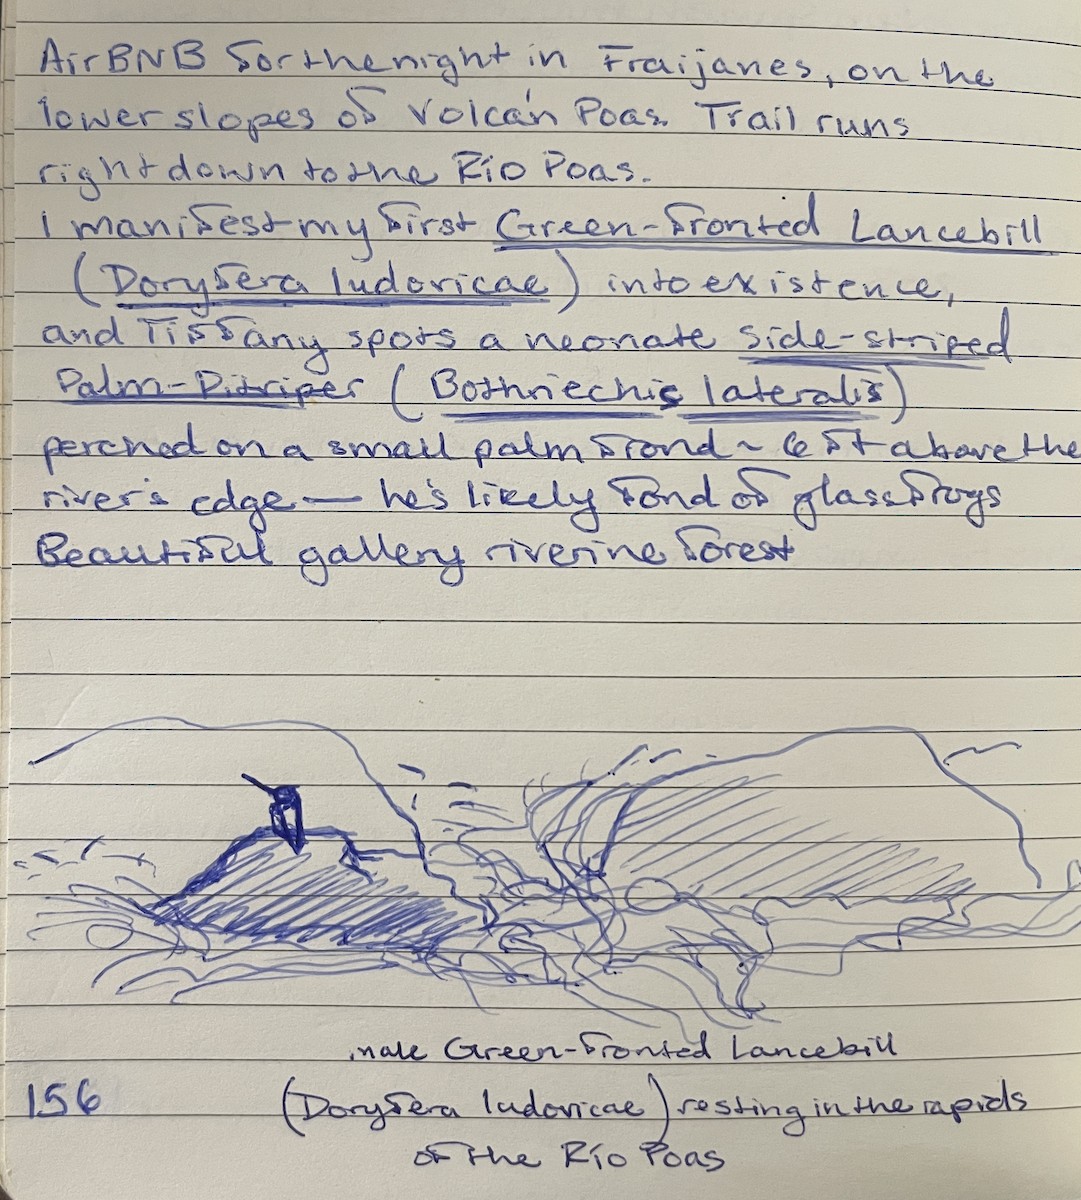 AirBNB for the night in Fraijanes, on the
lower slopes of Volcán Poas. Trail runs
right down to the Río Poas.
I manifest my first Green-fronted Lancebill
(Doryfera ludovicae) into existence,
and Tiffany spots a neonate side-striped
Palm-Pitviper (Bothriechis lateralis)
perched on a small palm frond ~ 6 ft above the
river's edge — he's likely fond of glass frogs
Beautiful gallery riverine forest
male Green-fronted Lancebill
156 (Doryfera ludovicae) resting in the rapids
of the Río Poas